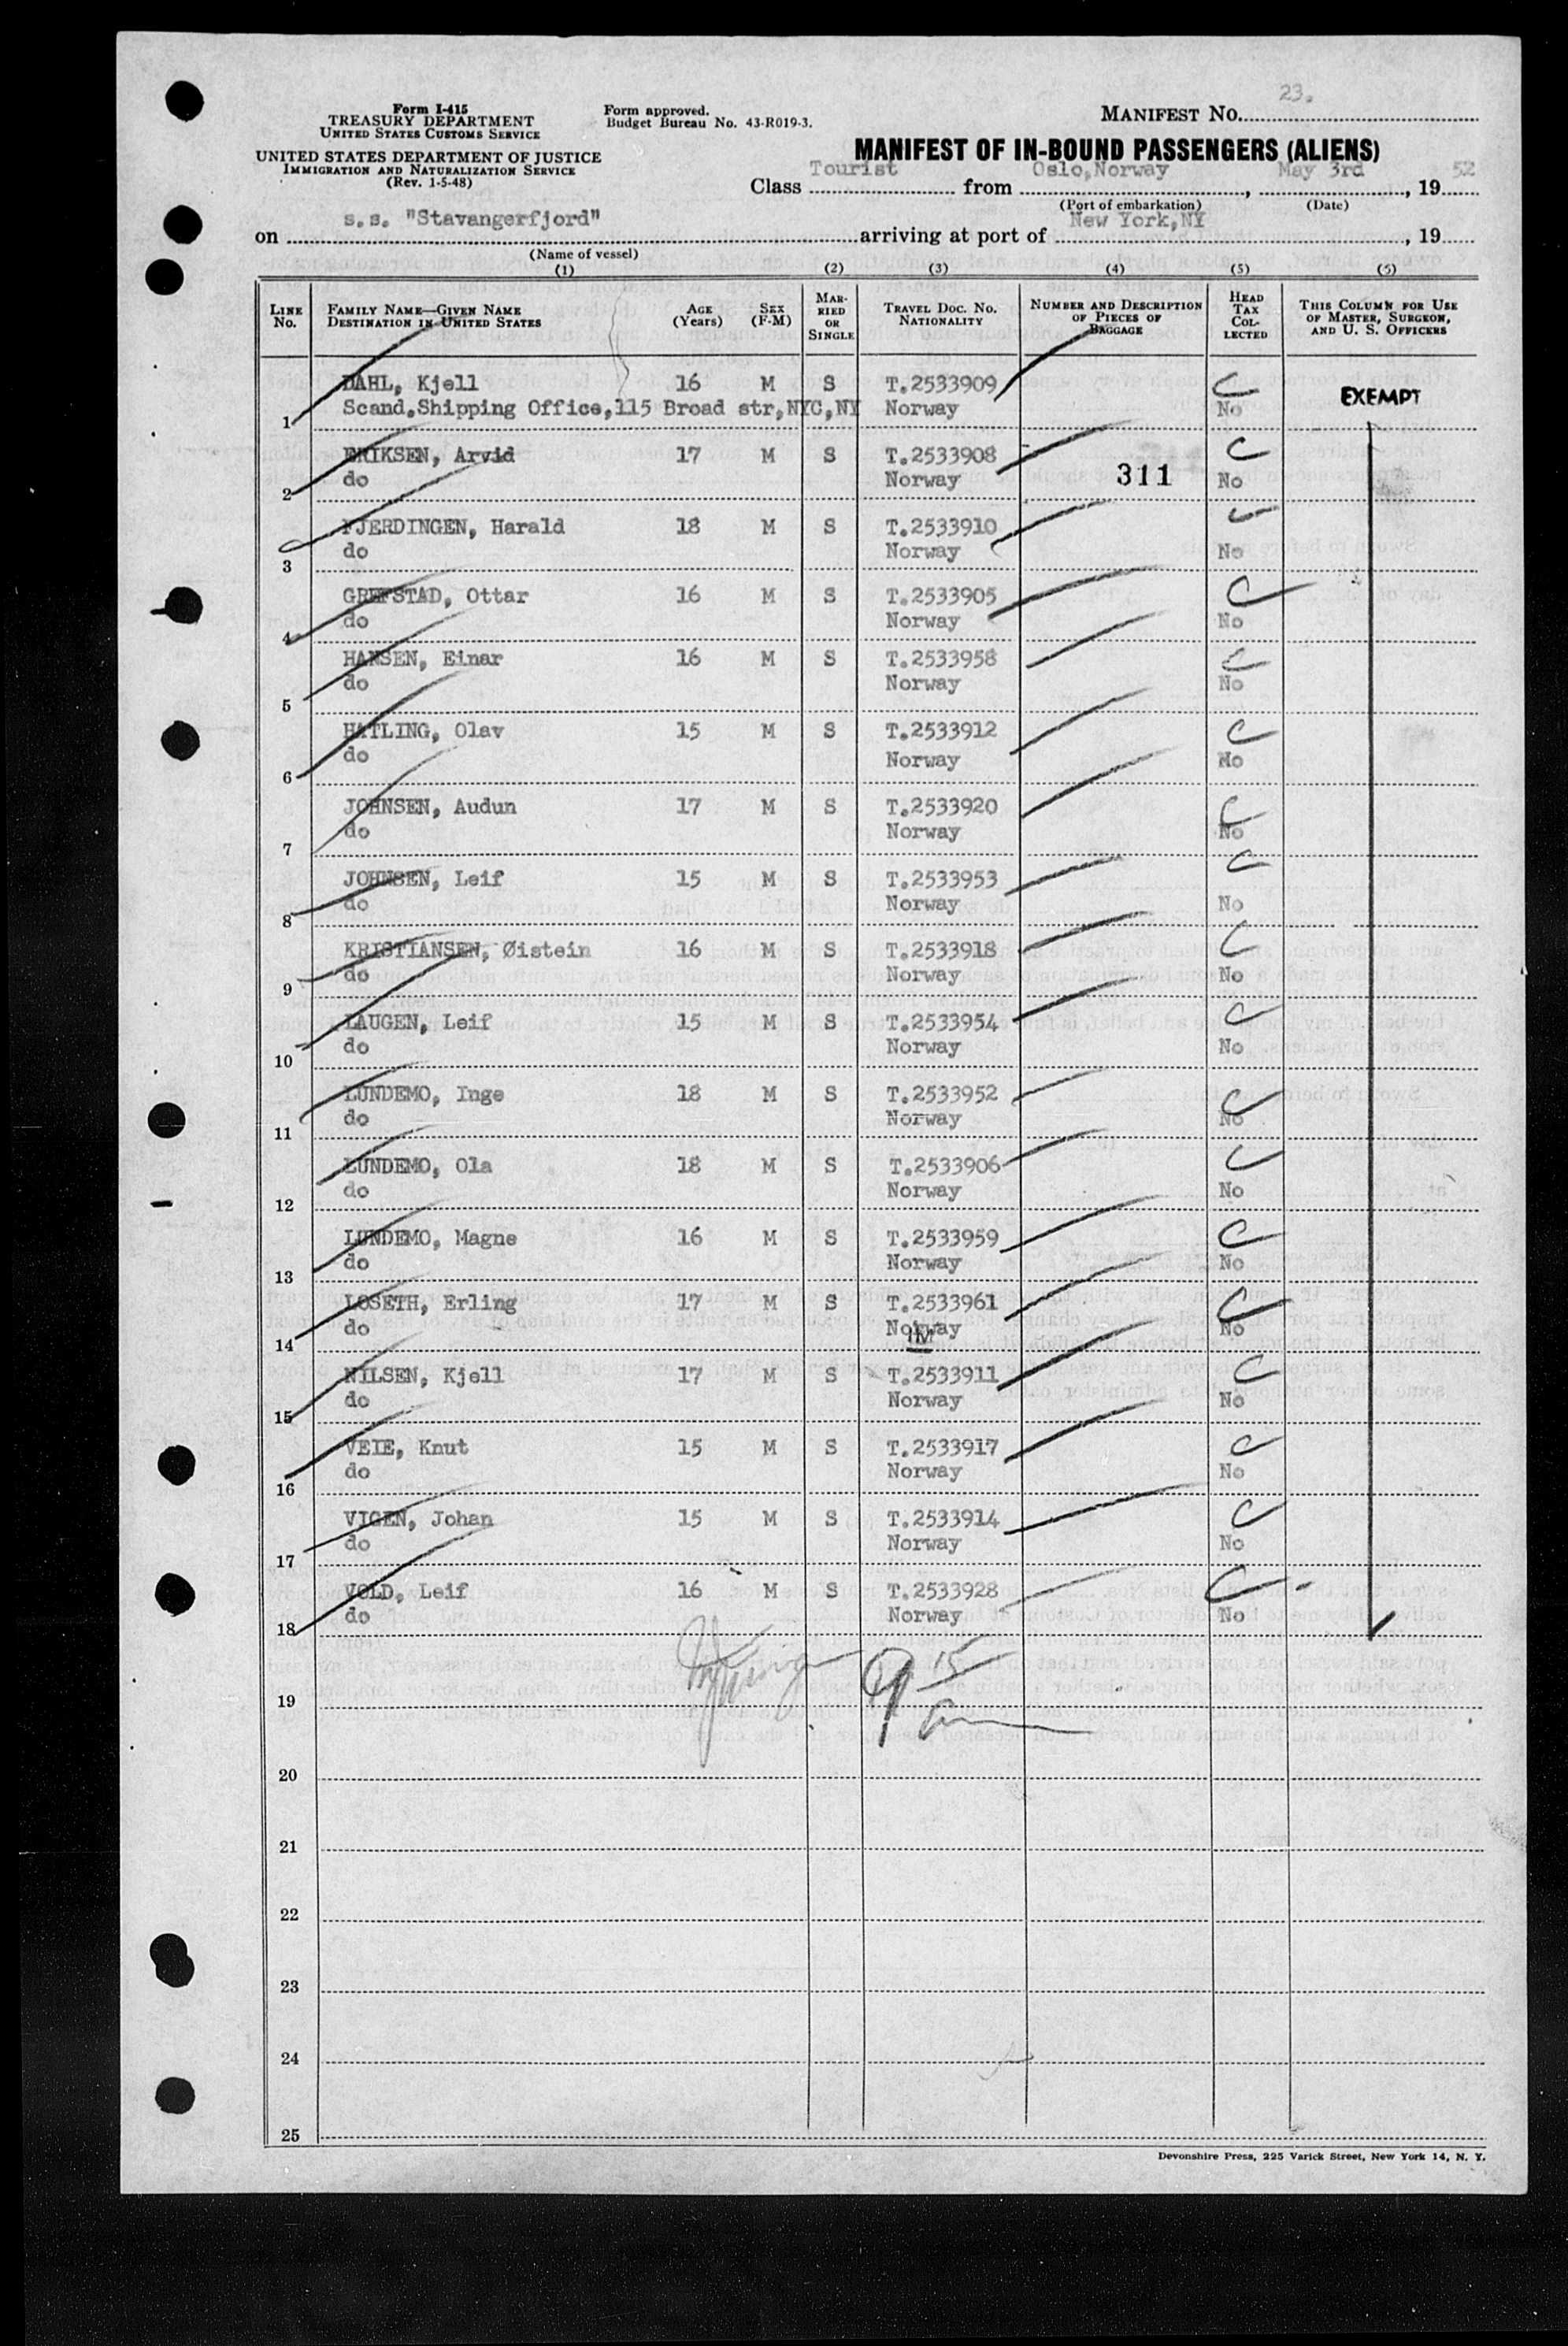 23.
Form I-415
TREASURY DEPARTMENT
UNITED STATES CUSTOMS SERVICE
Form approved.
Budget Bureau No. 43-R019-3.
MANIFEST NO.
UNITED STATES DEPARTMENT OF JUSTICE
IMMIGRATION AND NATURALIZATION SERVICE
(Rev. 1-5-48)
MANIFEST OF IN-BOUND PASSENGERS (ALIENS)
Class Tourist from Oslo,Norway, May 3rd, 19 52
(Port of embarkation) (Date)
on s.s. "Stavangerfjord" arriving at port of New York,NY, 19
(Name of vessel)
(1) (2) (3) (4) (5) (5)
LINE No. FAMILY NAME—GIVEN NAME DESTINATION IN UNITED STATES AGE (Years) SEX (F-M) MARRIED OR SINGLE TRAVEL DOC. NO. NATIONALITY NUMBER AND DESCRIPTION OF PIECES OF BAGGAGE HEAD TAX COLLECTED THIS COLUMN FOR USE OF MASTER, SURGEON, AND U. S. OFFICERS
DAHL, Kjell 16 M S T.2533909 C EXEMPT
1 Scand.Shipping Office,115 Broad str,NYC,NY Norway No
ERIKSEN, Arvid 17 M S T.2533908 C
2 do Norway 311 No
FJERDINGEN, Harald 18 M S T.2533910
3 do Norway No
GREFSTAD, Ottar 16 M S T.2533905 C
4 do Norway No
HANSEN, Einar 16 M S T.2533958 C
5 do Norway No
HATLING, Olav 15 M S T.2533912 C
6 do Norway No
JOHNSEN, Audun 17 M S T.2533920 C
7 do Norway No
JOHNSEN, Leif 15 M S T.2533953 C
8 do Norway No
KRISTIANSEN, Øistein 16 M S T.2533918 C
9 do Norway No
LAUGEN, Leif 15 M S T.2533954 C
10 do Norway No
LUNDEMO, Inge 18 M S T.2533952 C
11 do Norway No
LUNDEMO, Ola 18 M S T.2533906 C
12 do Norway No
LUNDEMO, Magne 16 M S T.2533959 C
13 do Norway No
LOSETH, Erling 17 M S T.2533961 C
14 do Norway No
IM
NILSEN, Kjell 17 M S T.2533911 C
15 do Norway No
VEIE, Knut 15 M S T.2533917 C
16 do Norway No
VIGEN, Johan 15 M S T.2533914 C
17 do Norway No
VOLD, Leif 16 M S T.2533928 C
18 do Norway No
9 15
am
19
20
21
22
23
24
25
Devonshire Press, 225 Varick Street, New York 14, N. Y.